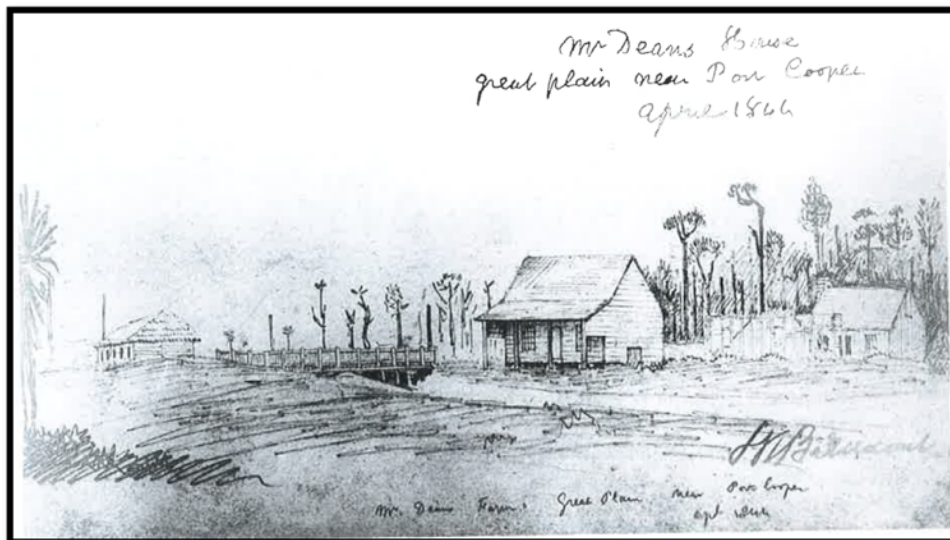 Mr Deans House
great plain near Port Cooper
april 1844
Mr. Deans Farm. Great Plain near Port Cooper
apl 1844